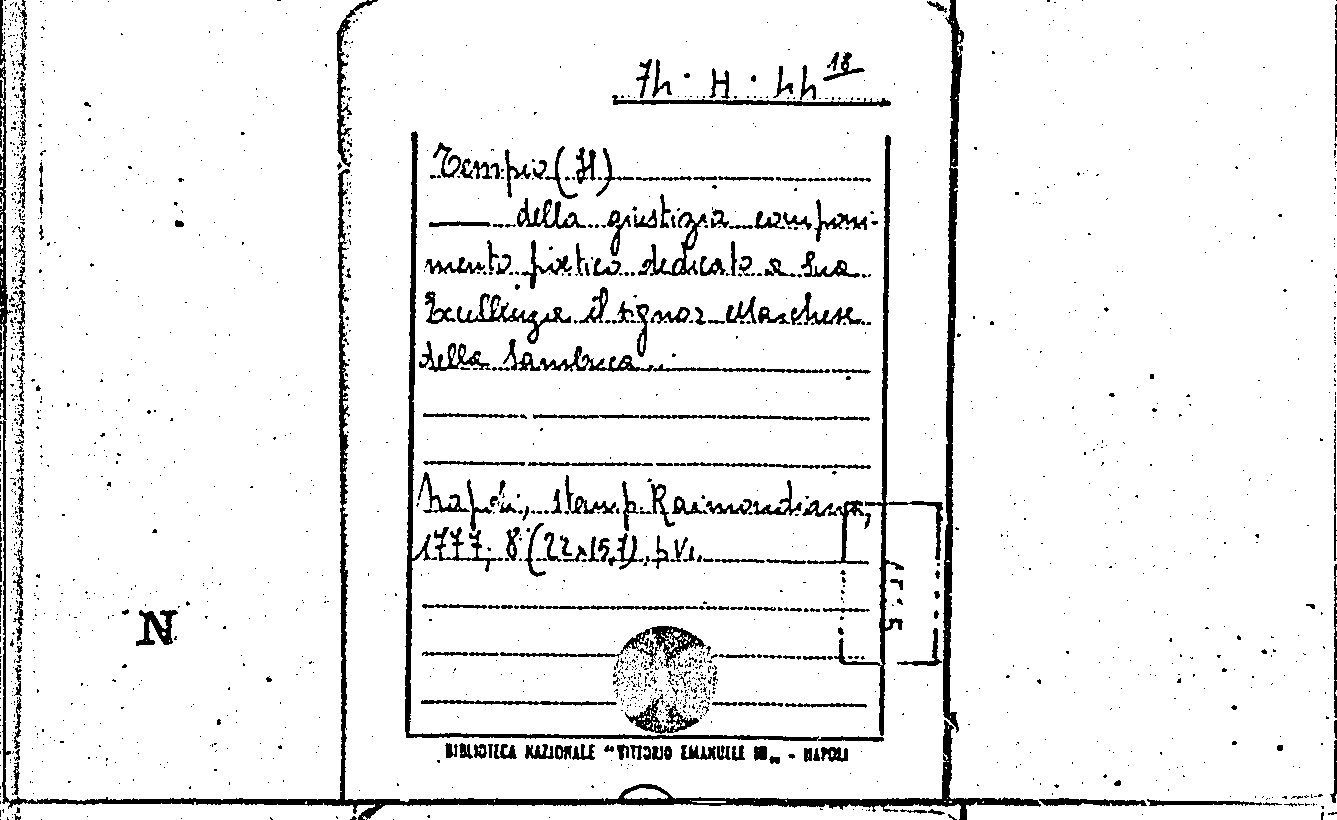 7h · H · hh 18
Tempio (Il)
—— della giustizia componi-
mento poetico dedicato a Sua
Eccellenza il signor Marchese
della Sambuca..
Napoli, stamp. Raimondiana,
1777; 8° (22x15,7), p VI.
N
BIBLIOTECA NAZIONALE "VITTORIO EMANUELE III" - NAPOLI